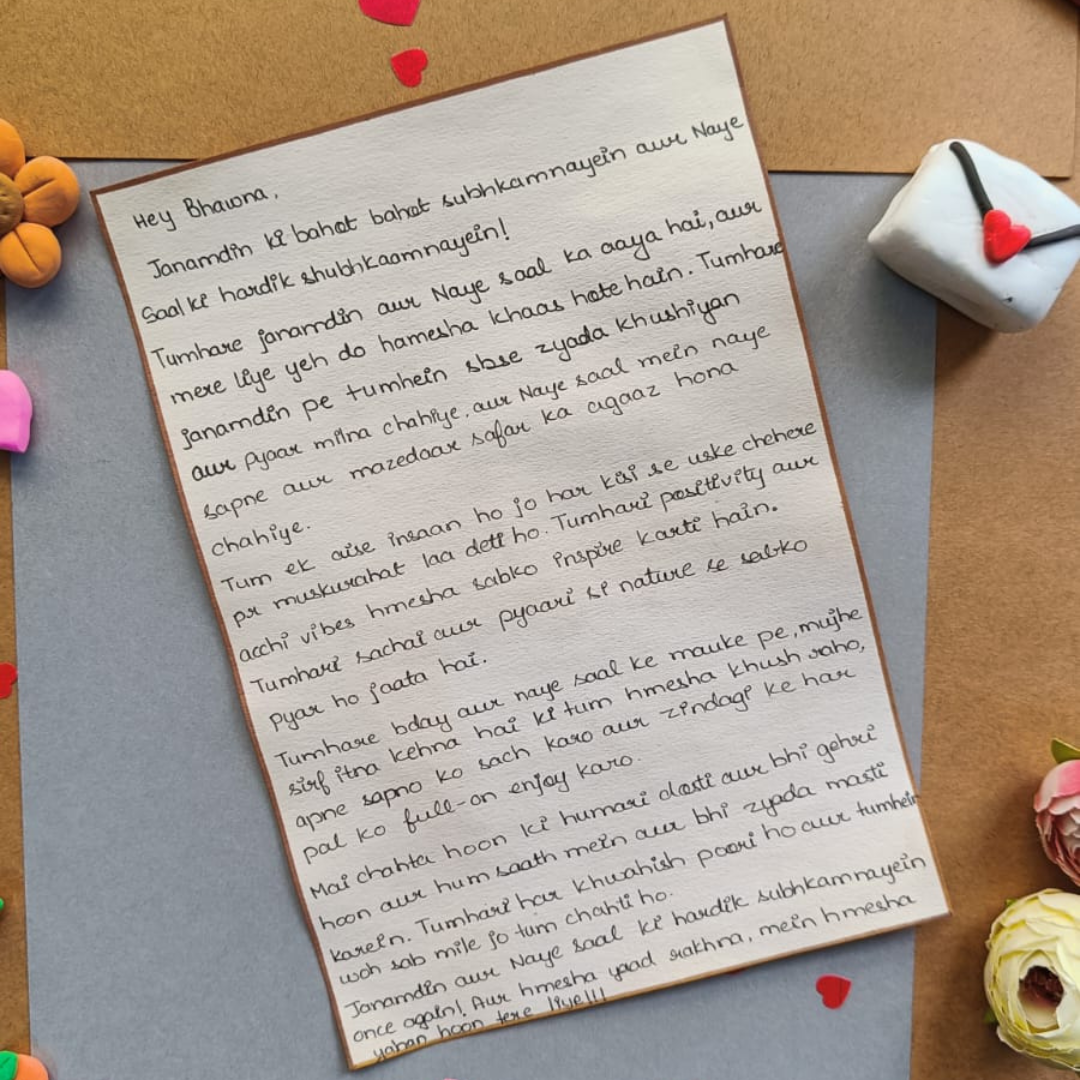 Hey Bhawna,
Janamdin ki bahot bahot subhkamnayein aur Naye
Saal ki hardik shubhkaamnayein!
Tumhare janamdin aur Naye saal ka aaya hai, aur
mere liye yeh do hamesha khaas hote hain. Tumhare
janamdin pe tumhein sbse zyada khushiyan
aur pyaar milna chahiye, aur Naye saal mein naye
sapne aur mazedaar safar ka agaaz hona
chahiye.
Tum ek aise insaan ho jo har kisi se uske chehere
pr muskurahat laa deti ho. Tumhari positivity aur
acchi vibes hmesha sabko inspire karti hain.
Tumhari sachai aur pyaari si nature se sabko
pyar ho jaata hai.
Tumhare bday aur naye saal ke mauke pe, mujhe
sirf itna kehna hai ki tum hmesha khush raho,
apne sapno ko sach karo aur zindagi ke har
pal ko full-on enjoy karo.
Mai chahta hoon ki humari dosti aur bhi gehri
hoon aur hum saath mein aur bhi zyada masti
karein. Tumhari har khwahish poori ho aur tumhein
woh sab mile jo tum chahti ho.
Janamdin aur Naye saal ki hardik subhkamnayein
once again! Aur hmesha yaad rakhna, mein hmesha
yahan hoon tere liye!!!